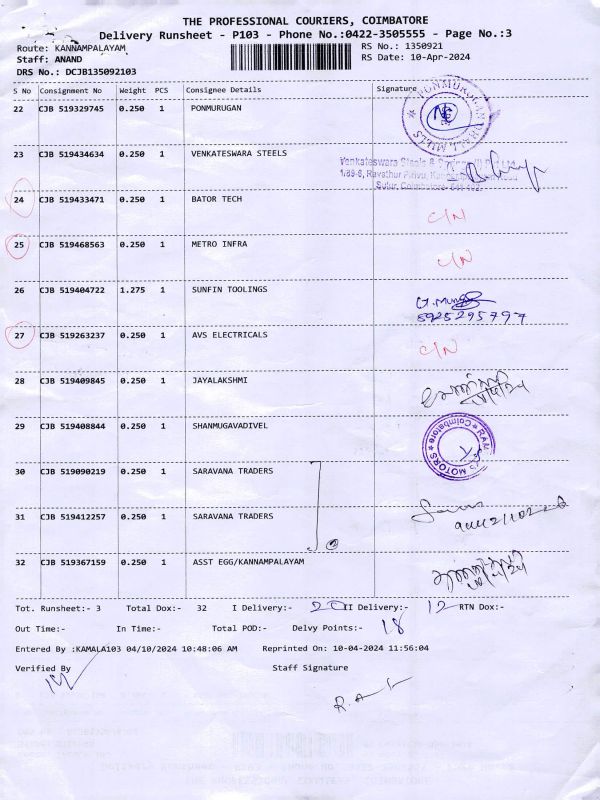 THE PROFESSIONAL COURIERS, COIMBATORE
Delivery Runsheet - P103 - Phone No.:0422-3505555 - Page No.:3
Route: KANNAMPALAYAM RS No.: 1350921
Staff: ANAND RS Date: 10-Apr-2024
DRS No.: DCJB135092103
S No Consignment No Weight PCS Consignee Details Signature
22 CJB 519329745 0.250 1 PONMURUGAN
23 CJB 519434634 0.250 1 VENKATESWARA STEELS
24 CJB 519433471 0.250 1 BATOR TECH C/N
25 CJB 519468563 0.250 1 METRO INFRA C/N
26 CJB 519404722 1.275 1 SUNFIN TOOLINGS
27 CJB 519263237 0.250 1 AVS ELECTRICALS C/N
28 CJB 519409845 0.250 1 JAYALAKSHMI
29 CJB 519408844 0.250 1 SHANMUGAVADIVEL
30 CJB 519090219 0.250 1 SARAVANA TRADERS
31 CJB 519412257 0.250 1 SARAVANA TRADERS
32 CJB 519367159 0.250 1 ASST EGG/KANNAMPALAYAM
Tot. Runsheet:- 3 Total Dox:- 32 I Delivery:- 20 II Delivery:- 12 RTN Dox:-
Out Time:- In Time:- Total POD:- Delvy Points:- 18
Entered By :KAMALA103 04/10/2024 10:48:06 AM Reprinted On: 10-04-2024 11:56:04
Verified By Staff Signature